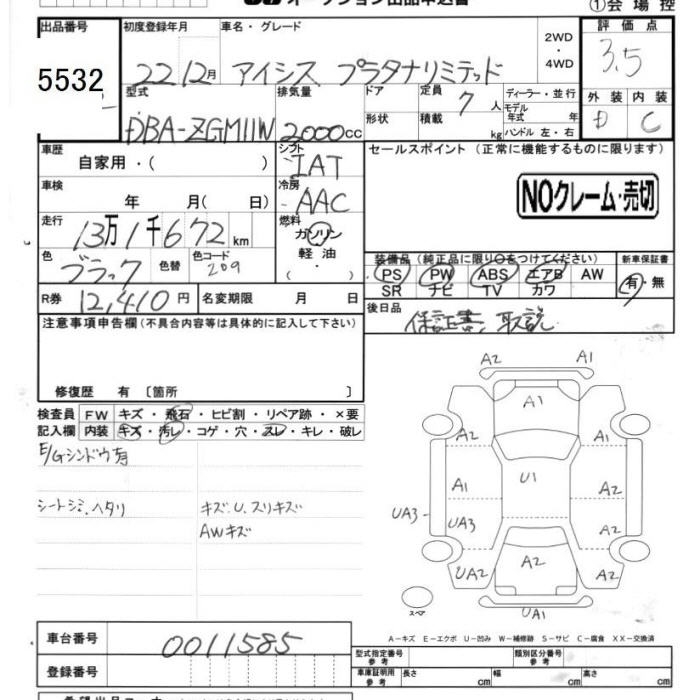 オークション出品申込書
①会場控
出品番号
初度登録年月
車名・グレード
評価点
5532
22 12月
アイシス プラタナリミテッド
2WD
・
4WD
3.5
型式
排気量
ドア
定員
7
人
ディーラー・並行
外装
内装
DBA-ZGM11W
2000cc
形状
積載
kg
モデル年式
年
ハンドル 左・右
D
C
車歴
シフト
セールスポイント (正常に機能するものに限ります)
自家用・( )
IAT
車検
冷房
NOクレーム・売切
年 月( 日)
AAC
走行
13万1千672km
燃料
ガソリン
軽油
( ・ )
色
ブラック
色替
色コード
209
装備品 (純正品に限り○をつけてください)
新車保証書
PS
PW
ABS
エアB
AW
有・無
SR
ナビ
TV
カワ
R券
12,410円
名変期限 月 日
後日品
保証書、取説
注意事項申告欄(不具合内容等は具体的に記入して下さい)
修復歴 有〔箇所 〕
検査員
FW
キズ・飛石・ヒビ割・リペア跡・×要
記入欄
内装
キズ・汚レ・コゲ・穴・スレ・キレ・破レ
E/Gシンドウ有
シートシミ、ヘタリ
キズ、U、スリキズ
AWキズ
A2
A1
A1
A2
A2
A1
U1
A2
UA3
UA3
A2
UA2
A2
A2
UA1
スペア
A−キズ E−エクボ U−凹み W−補修跡 S−サビ C−腐食 XX−交換済
車台番号
0011585
型式指定番号
参考
類別区分番号
参考
登録番号
車庫証明用
参考
長さ
cm
幅
cm
高さ
cm
希望出品コーナー